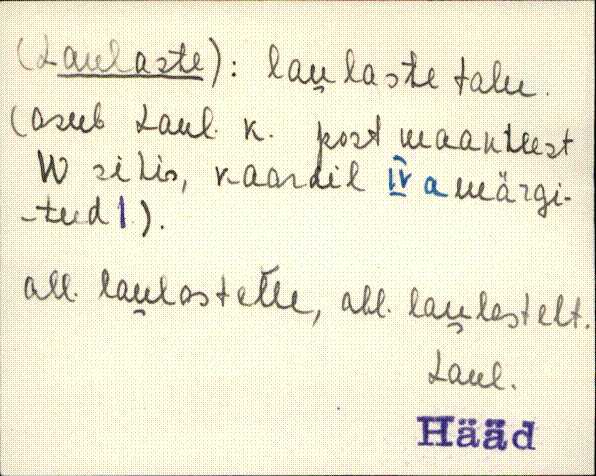 (Laulaste): lau̯laste talu.
(asub Laul. k. post maanteest
W sihis, kaardil IV a märgi-
-tud 1).
all. lau̯lastelle, abl. lau̯lastelt.
Laul.
Hääd